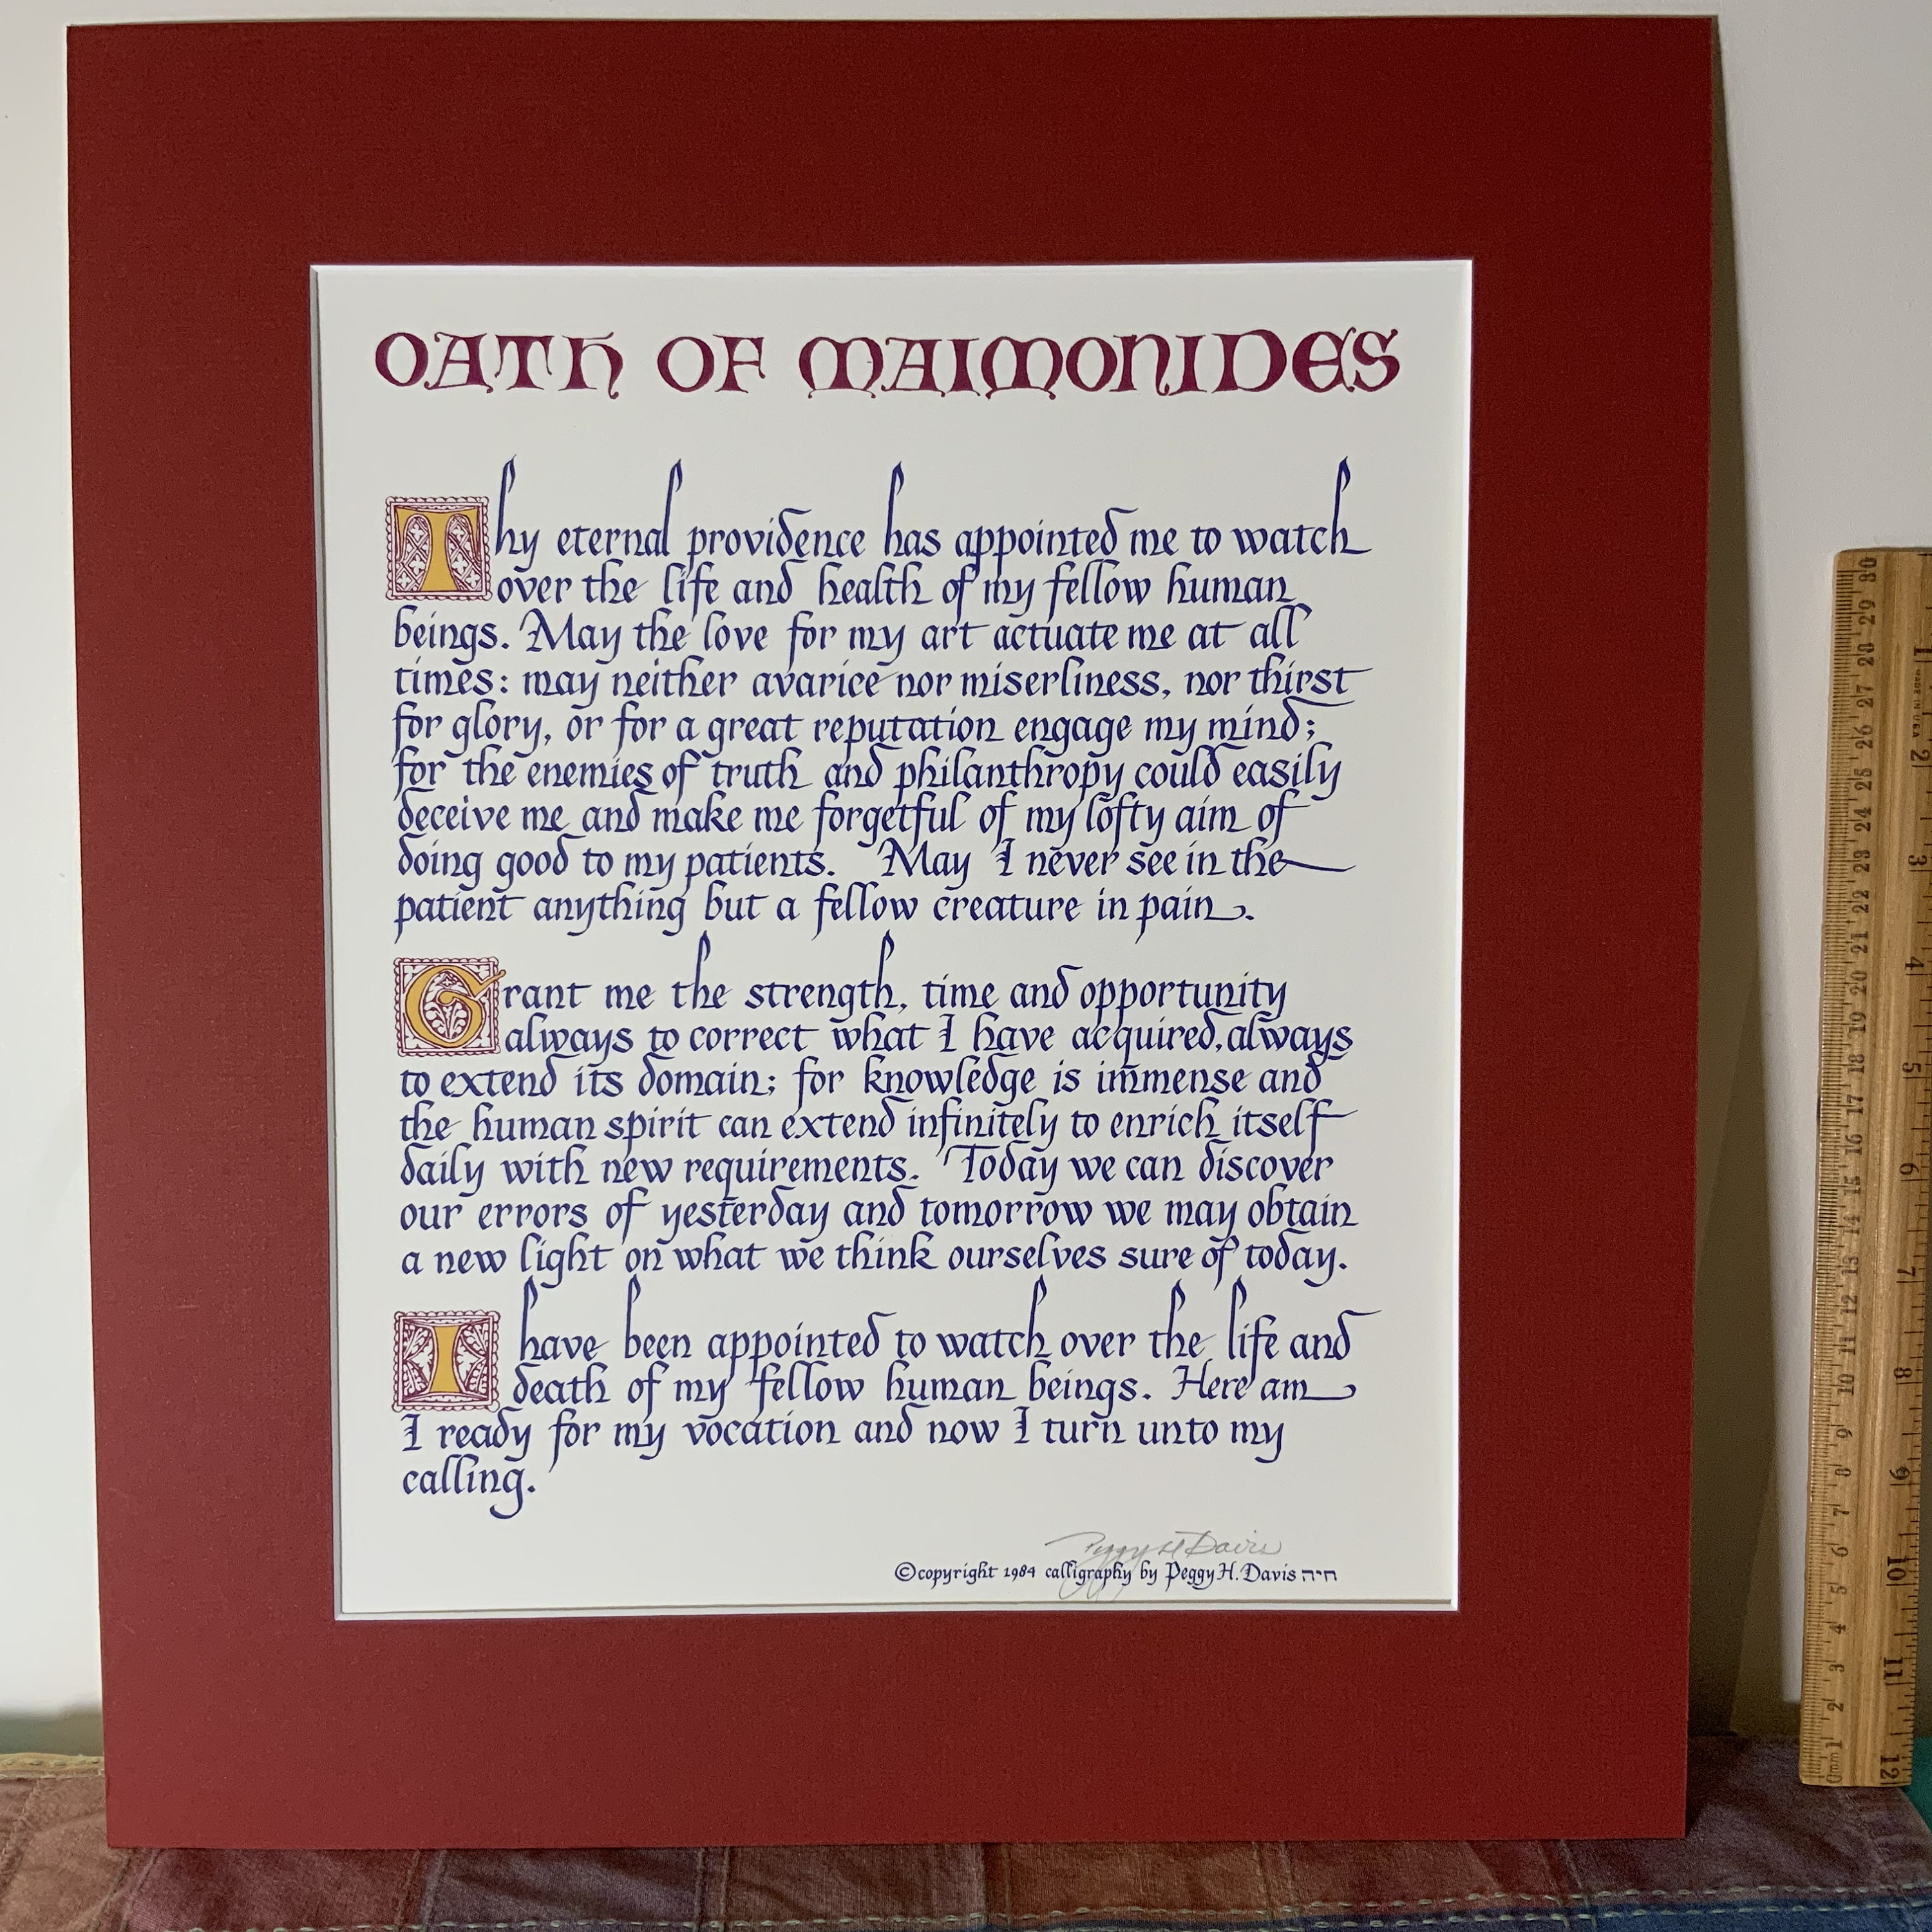 OATH OF MAIMONIDES
Thy eternal providence has appointed me to watch
over the life and health of my fellow human
beings. May the love for my art actuate me at all
times: may neither avarice nor miserliness, nor thirst
for glory, or for a great reputation engage my mind;
for the enemies of truth and philanthropy could easily
deceive me and make me forgetful of my lofty aim of
doing good to my patients. May I never see in the
patient anything but a fellow creature in pain.
Grant me the strength, time and opportunity
always to correct what I have acquired, always
to extend its domain; for knowledge is immense and
the human spirit can extend infinitely to enrich itself
daily with new requirements. Today we can discover
our errors of yesterday and tomorrow we may obtain
a new light on what we think ourselves sure of today.
I have been appointed to watch over the life and
death of my fellow human beings. Here am
I ready for my vocation and now I turn unto my
calling.
Peggy H Davis
©copyright 1984 calligraphy by Peggy H. Davis חיה
30 29 28 27 26 25 24 23 22 21 20 19 18 17 16 15 14 13 12 11 10 9 8 7 6 5 4 3 2 1 0mm
1 2 3 4 5 6 7 8 9 10 11 12